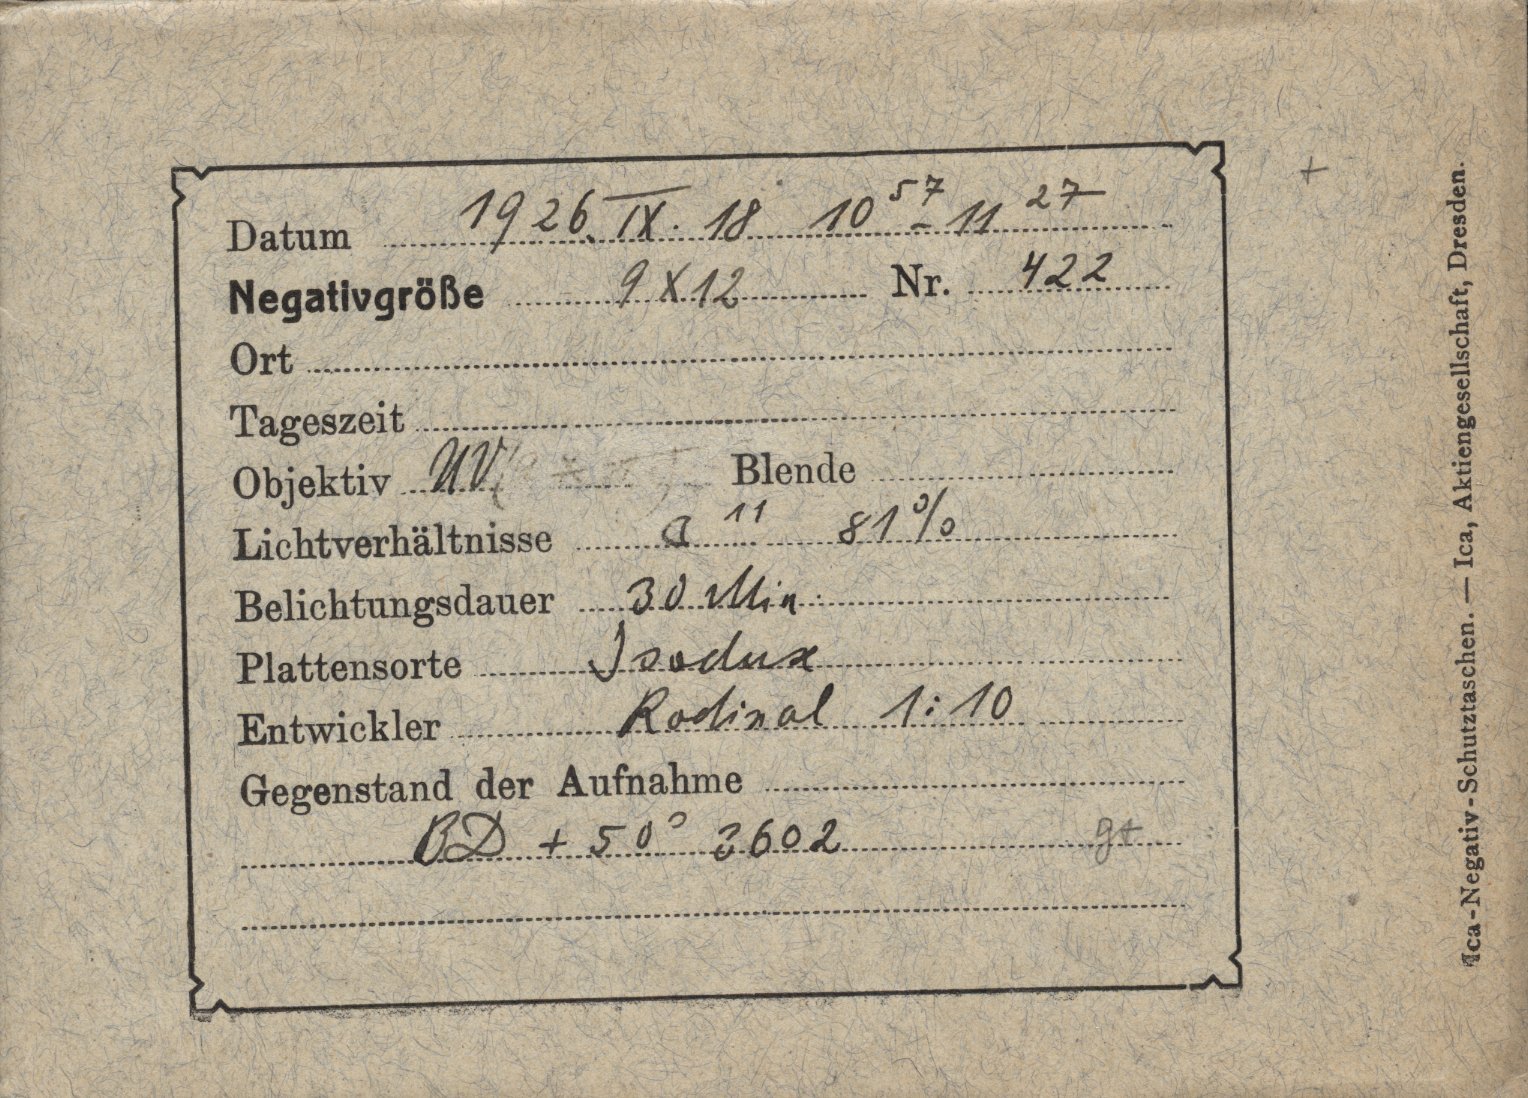 Datum 1926. IX. 18 10 57 - 11 27
Negativgröße 9 X 12 Nr. 422
Ort
Tageszeit
Objektiv UV Blende
Lichtverhältnisse a 11 81%
Belichtungsdauer 30 Min.
Plattensorte Isodux
Entwickler Rodinal 1:10
Gegenstand der Aufnahme
BD + 50° 3602 gt
Ica-Negativ-Schutztaschen. — Ica, Aktiengesellschaft, Dresden.
+